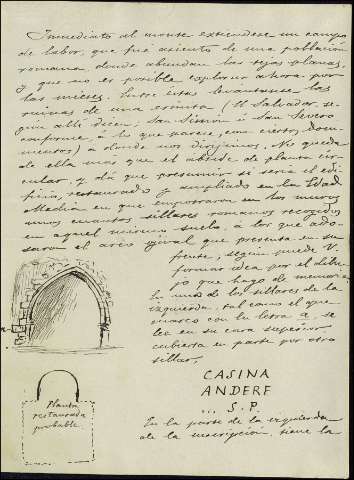 Inmediato al monte extiendese un campo
de labor, que fué asiento de una población
romana donde abundan las tejas planas,
y que no es posible explorar ahora por
las mieses. Entre estas levántanse las
ruinas de una ermita (El Salvador, se-
gún allí dicen, San Simón ó San Severo
conforme á lo que parece, con cierto, docu-
mentos) a donde nos dirijimos. No queda
de ella más que el abside de planta cir-
cular, y dá que presumir si sería el edi-
ficio, restaurado y ampliado en la Edad
Media en que empotraron en los muros
unos cuantos sillares romanos recogidos
en aquel mismo suelo, á los que ado-
saron el arco ojival que presenta en su
frente, según puede V.
formar idea por el dibu-
jo que hago de memoria.
En uno de los sillares de la
izquierda, tal como el que
marco con la letra a, se
lee en su cara superior,
cubierta en parte por otro
sillar,
CASINA
ANDERF
... S. P.
En la parte de la izquierda
de la inscripción, tiene la
a
Planta
restaurada
probable.